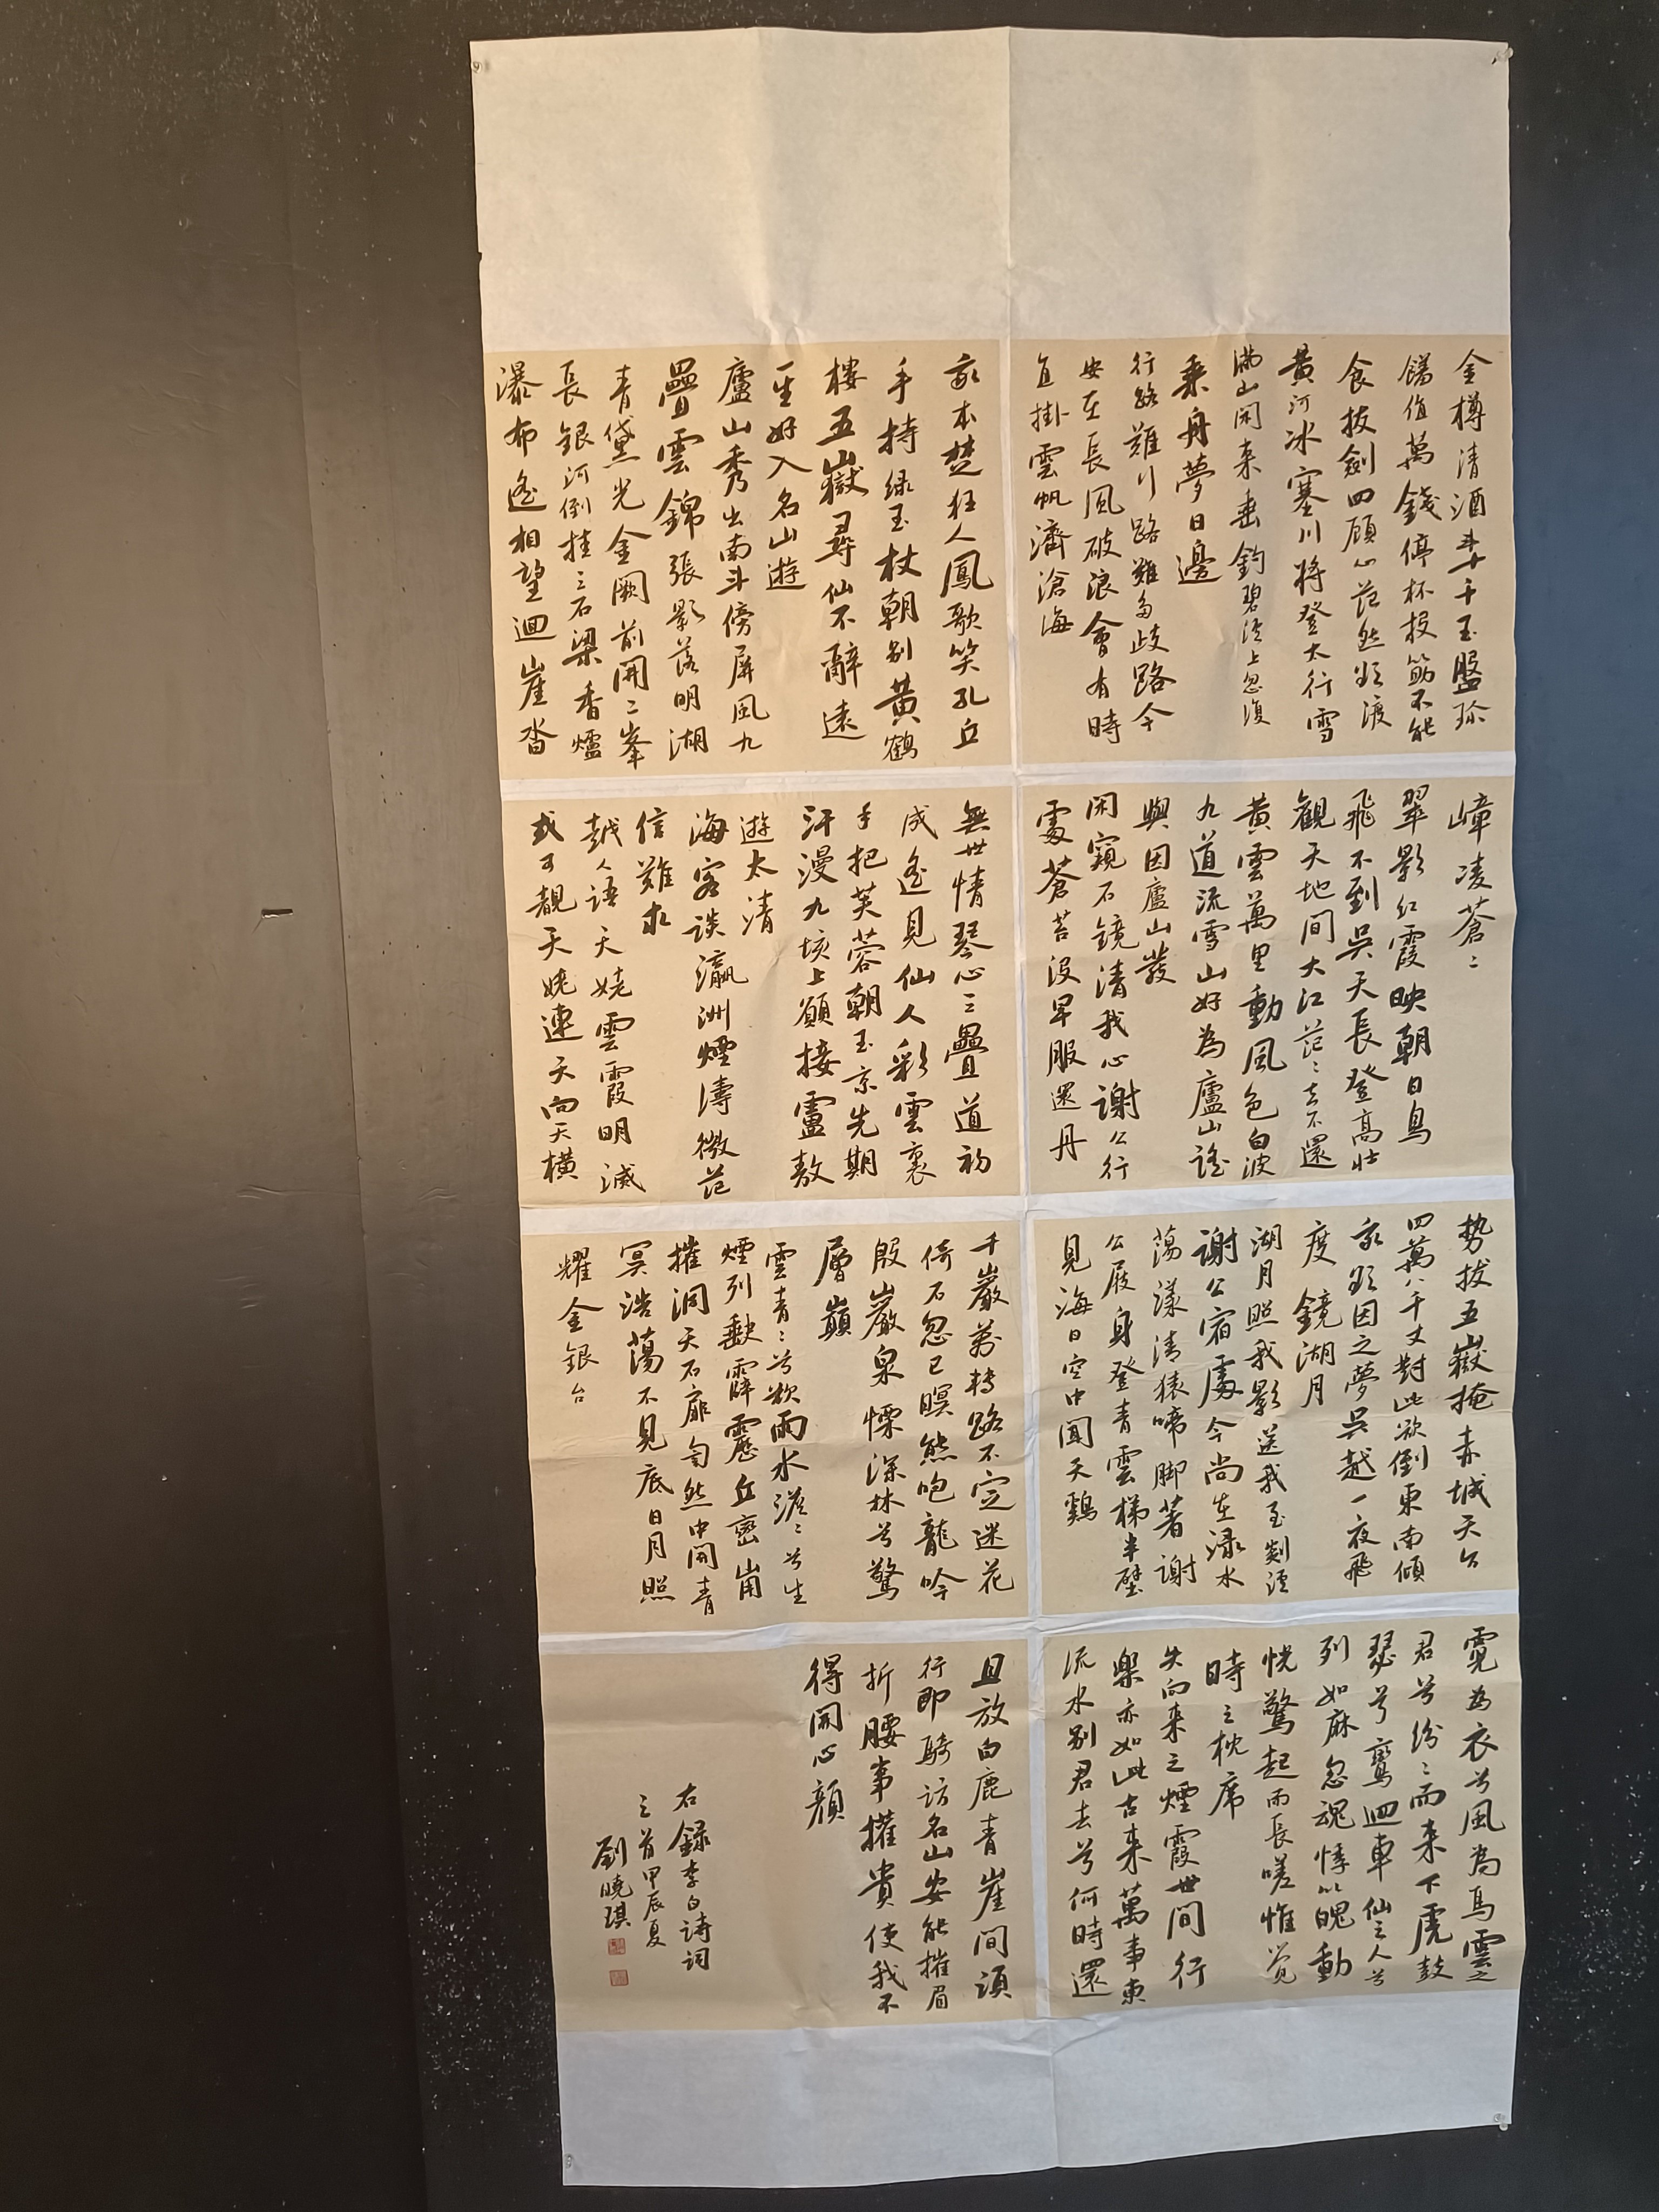 金樽清酒斗十千玉盤珍
饈值萬錢停杯投筯不能
食拔劍四顧心茫然欲渡
黃河冰塞川將登太行雪
滿山閑来垂釣碧溪上忽復
乘舟夢日邊
行路難行路難多歧路今
安在長風破浪會有時
直掛雲帆濟滄海
我本楚狂人鳳歌笑孔丘
手持绿玉杖朝别黃鶴
樓五嶽尋仙不辭遠
一生好入名山遊
廬山秀出南斗傍屏風九
疊雲錦張影落明湖
青黛光金闕前開二峯
長銀河倒挂三石梁香爐
瀑布遙相望迴崖沓
嶂凌蒼〻
翠影红霞映朝日鳥
飛不到吳天長登高壯
觀天地間大江茫〻去不還
黃雲萬里動風色白波
九道流雪山好為廬山謠
興因廬山發
閑窺石鏡清我心謝公行
處蒼苔沒早服還丹
無世情琴心三疊道初
成遙見仙人彩雲裏
手把芙蓉朝玉京先期
汗漫九垓上願接盧敖
遊太清
海客談瀛洲煙濤微茫
信難求
越人語天姥雲霞明滅
或可覩天姥連天向天橫
势拔五嶽掩赤城天台
四萬八千丈對此欲倒東南傾
我欲因之夢吳越一夜飛
度鏡湖月
湖月照我影送我至剡溪
謝公宿處今尚在渌水
蕩漾清猿啼脚著謝
公屐身登青雲梯半壁
見海日空中聞天鷄
千巖萬轉路不定迷花
倚石忽已暝熊咆龍吟
殷巖泉慄深林兮驚
層巔
雲青〻兮欲雨水澹〻兮生
煙列缺霹靂丘巒崩
摧洞天石扉訇然中開青
冥浩蕩不見底日月照
耀金銀台
霓為衣兮風為馬雲之
君兮纷〻而来下虎鼓
瑟兮鸞迴車仙之人兮
列如麻忽魂悸以魄動
恍驚起而長嗟惟觉
時之枕席
失向来之煙霞世間行
樂亦如此古来萬事東
流水别君去兮何時還
且放白鹿青崖間須
行即騎访名山安能摧眉
折腰事權貴使我不
得開心顏
右錄李白詩词
三首甲辰夏
劉曉琪